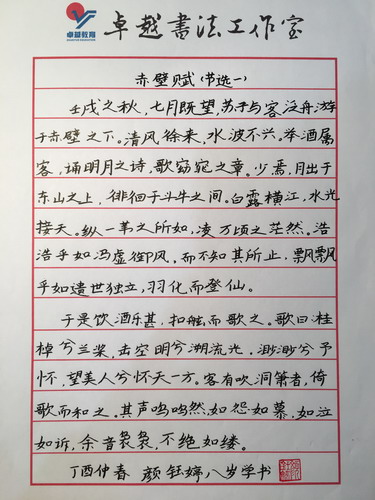 卓越教育
卓越书法工作室
赤壁赋(节选一)
壬戌之秋,七月既望,苏子与客泛舟,游
于赤壁之下。清风徐来,水波不兴。举酒属
客,诵明月之诗,歌窈窕之章。少焉,月出于
东山之上,徘徊于斗牛之间。白露横江,水光
接天。纵一苇之所如,凌万顷之茫然。浩
浩乎如冯虚御风。而不知其所止,飘飘
乎如遗世独立,羽化而登仙。
于是饮酒乐甚,扣舷而歌之。歌曰:桂
棹兮兰桨,击空明兮溯流光。渺渺兮予
怀,望美人兮怀天一方。客有吹洞箫者,倚
歌而和之。其声呜呜然,如怨如慕,如泣
如诉,余音袅袅,不绝如缕。
丁酉仲春 颜钰婷八岁学书